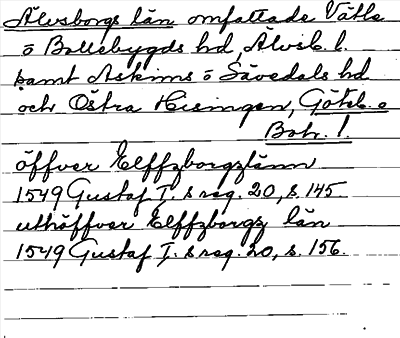 Älvsborgs län omfattade Vätle
o Bollebygds hd, Älvsb. l.
samt Askims o Sävedals hd
och Östra Hisingen, Göteb. o
Boh. l.
öffver Elffzborgzlänn
1549 Gustaf I. s reg. 20, s. 145.
uthöffver Elffzborgz län
1549 Gustaf I. s reg. 20, s. 156.